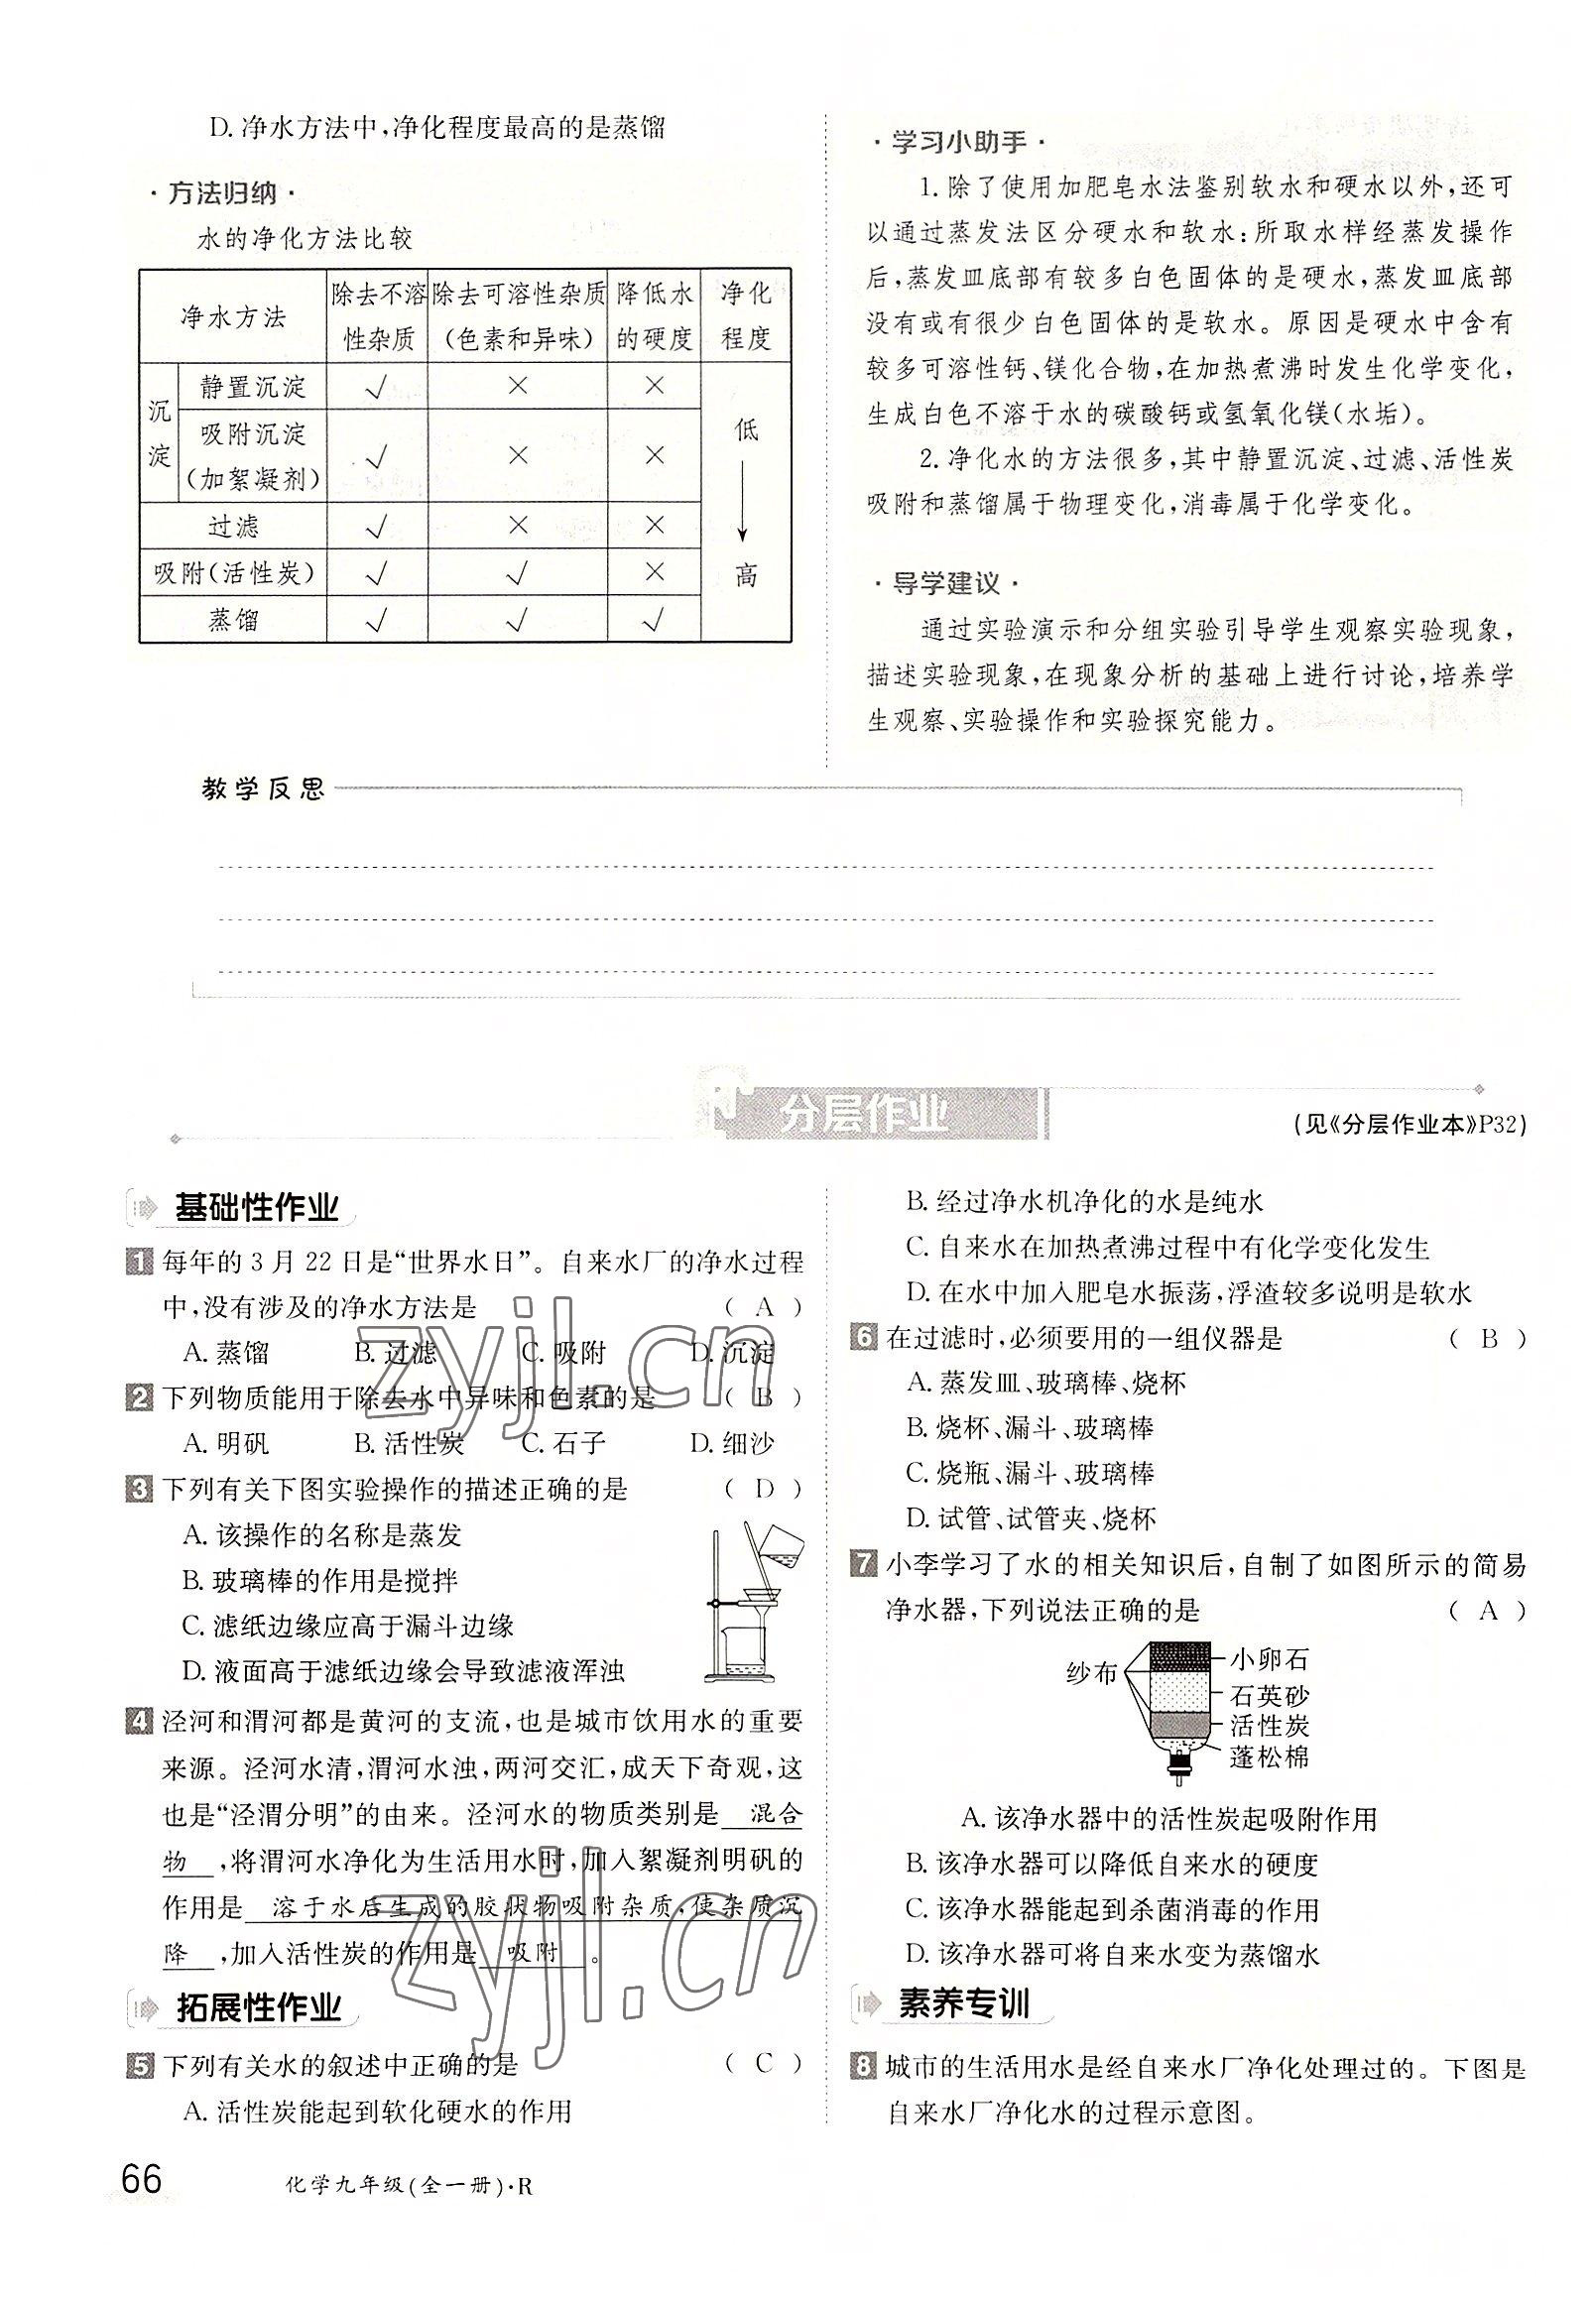 D. 净水方法中,净化程度最高的是蒸馏
·方法归纳·
水的净化方法比较
净水方法 除去不溶性杂质 除去可溶性杂质(色素和异味) 降低水的硬度 净化程度
沉淀 静置沉淀 √ × × 低
吸附沉淀(加絮凝剂) √ × ×
过滤 √ × ×
吸附(活性炭) √ √ × 高
蒸馏 √ √ √
·学习小助手·
1.除了使用加肥皂水法鉴别软水和硬水以外,还可
以通过蒸发法区分硬水和软水:所取水样经蒸发操作
后,蒸发皿底部有较多白色固体的是硬水,蒸发皿底部
没有或有很少白色固体的是软水。原因是硬水中含有
较多可溶性钙、镁化合物,在加热煮沸时发生化学变化,
生成白色不溶于水的碳酸钙或氢氧化镁(水垢)。
2.净化水的方法很多,其中静置沉淀、过滤、活性炭
吸附和蒸馏属于物理变化,消毒属于化学变化。
·导学建议·
通过实验演示和分组实验引导学生观察实验现象,
描述实验现象,在现象分析的基础上进行讨论,培养学
生观察、实验操作和实验探究能力。
教学反思
分层作业
(见《分层作业本》P32)
基础性作业
1 每年的 3 月 22 日是“世界水日”。自来水厂的净水过程
中,没有涉及的净水方法是 ( A )
A. 蒸馏 B. 过滤 C. 吸附 D. 沉淀
2 下列物质能用于除去水中异味和色素的是 ( B )
A. 明矾 B. 活性炭 C. 石子 D. 细沙
3 下列有关下图实验操作的描述正确的是 ( D )
A. 该操作的名称是蒸发
B. 玻璃棒的作用是搅拌
C. 滤纸边缘应高于漏斗边缘
D. 液面高于滤纸边缘会导致滤液浑浊
4 泾河和渭河都是黄河的支流,也是城市饮用水的重要
来源。泾河水清,渭河水浊,两河交汇,成天下奇观,这
也是“泾渭分明”的由来。泾河水的物质类别是 混合
物 ,将渭河水净化为生活用水时,加入絮凝剂明矾的
作用是 溶于水后生成的胶状物吸附杂质,使杂质沉
降 ,加入活性炭的作用是 吸附 。
拓展性作业
5 下列有关水的叙述中正确的是 ( C )
A. 活性炭能起到软化硬水的作用
B. 经过净水机净化的水是纯水
C. 自来水在加热煮沸过程中有化学变化发生
D. 在水中加入肥皂水振荡,浮渣较多说明是软水
6 在过滤时,必须要用的一组仪器是 ( B )
A. 蒸发皿、玻璃棒、烧杯
B. 烧杯、漏斗、玻璃棒
C. 烧瓶、漏斗、玻璃棒
D. 试管、试管夹、烧杯
7 小李学习了水的相关知识后,自制了如图所示的简易
净水器,下列说法正确的是 ( A )
纱布
小卵石
石英砂
活性炭
蓬松棉
A. 该净水器中的活性炭起吸附作用
B. 该净水器可以降低自来水的硬度
C. 该净水器能起到杀菌消毒的作用
D. 该净水器可将自来水变为蒸馏水
素养专训
8 城市的生活用水是经自来水厂净化处理过的。下图是
自来水厂净化水的过程示意图。
66 化学九年级(全一册)·R
zyjl.cn
zyjl.cn